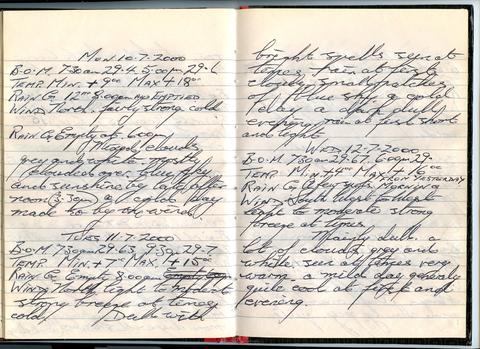 MON 10.7.2000
B.O.M. 7.30am 29.4, 5.00pm 29.6
TEMP. MIN. + 9°C MAX + 18°C
RAIN G. 8.00am EMPTIED
WIND North. fairly strong cold
RAIN G. Empty at 6.00pm
Mainly cloudy
grey and white mostly
clouded over blue sky
and sunshine by late after
noon 3.30pm a cold day
made so by the wind
TUES 11.7.2000
B.O.M. 7.30am 29.63, 29.7
TEMP. MIN. + 7°C MAX. + 15°C
RAIN G. Empty 8.00am
WIND North light to moderate
strong breeze at times
cold, Dull with
bright spells sun at
times, rain at first
cloudy small patches
of blue sky, a good
day a dull
evening rain at first short
and light
WED 12.7.2000
B.O.M. 7.30am 29.67. 6.00pm 29.
TEMP. MIN + 9°C MAX + 14°C
FROM YESTERDAY
RAIN G. A few MORNING
WIND South West to West
light to moderate strong
breeze at times
Mainly dull. a
lot of clouds, grey and
white, sun at times very
warm a mild day generally
quite cool at first and
evening